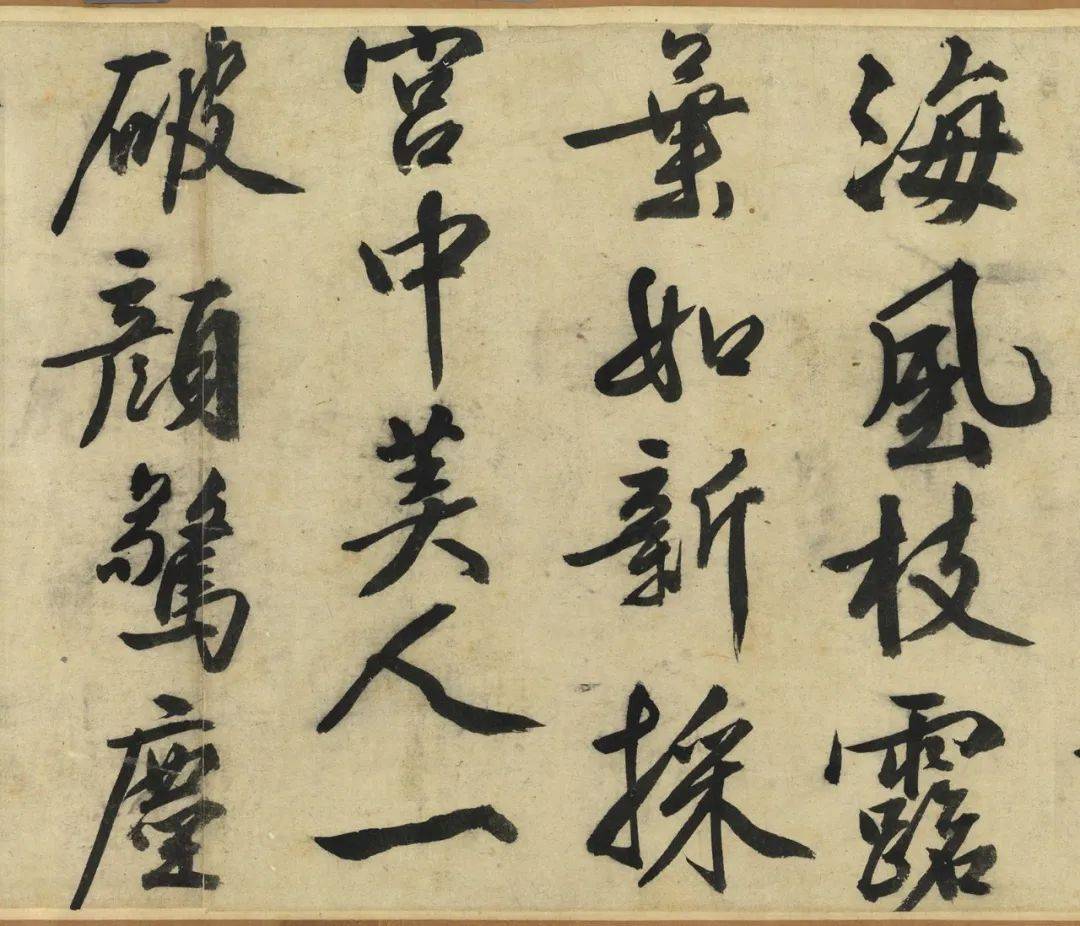 海風枝露
葉如新採
宮中美人一
破顏驚塵